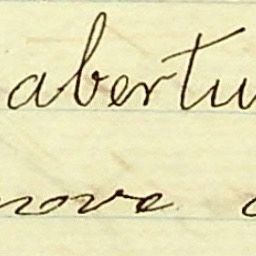 abertu
nove